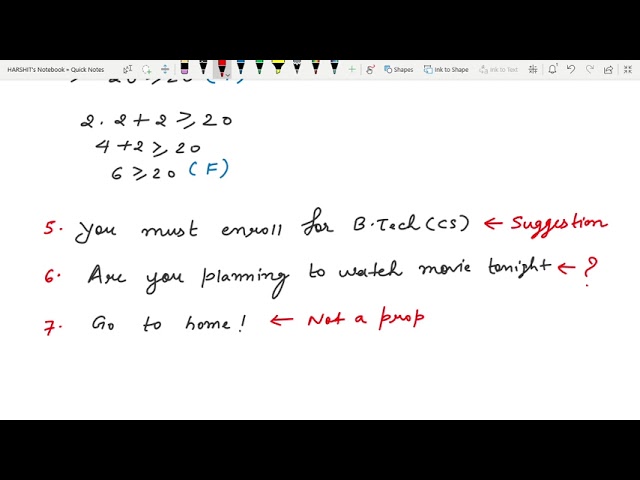 HARSHIT's Notebook » Quick Notes
Shapes Ink to Shape Ink to Text
2. 2 + 2 ⩾ 20
4 + 2 ⩾ 20
6 ⩾ 20 (F)
5. You must enroll for B.Tech (CS) ← Suggestion
6. Are you planning to watch movie tonight ← ?
7. Go to home! ← Not a prop